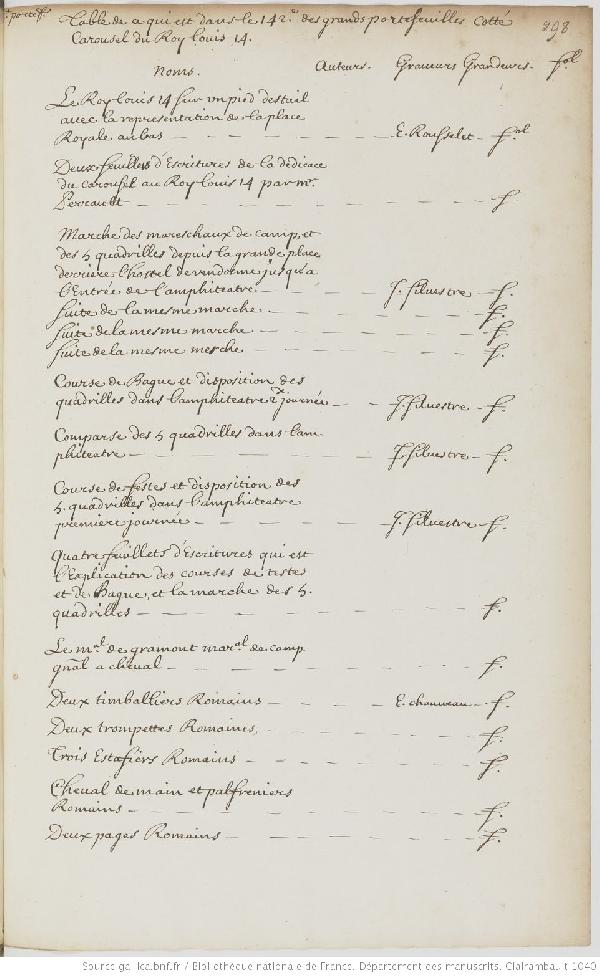 portef.
Table de a qui est dans le 142.e des grands portefeuilles cotté
Carousel du Roy Louis 14.
298
Noms. Auteurs. Graveurs Grandeurs. fol
Le Roy Louis 14 sur un pied destail
avec la representation de la place
Royale au bas — E. Rousselet — fol
Deux feuilles d'Escritures de la dedicace
du carousel au Roy Louis 14 par mr.
Perrault — f
Marche des mareschaux de camp, et
des 5 quadrilles depuis la grande place
derriere l'hostel de vendome jusqu'a
l'Entrée de l'amphiteatre. — J. Silvestre — f.
suite de la mesme marche — f.
suite de la mesme marche — f.
suite de la mesme merche — f.
Course de Bague et disposition des
quadrilles dans l'amphiteatre 2.e journée — J. Silvestre — f.
Comparse des 5 quadrilles dans l'am
phiteatre — J. Silvestre — f.
Course de testes et disposition des
5. quadrilles dans l'amphiteatre
premiere journée — J. Silvestre — f.
Quatre feuillets d'Escritures qui est
l'Explication des courses de testes
et de Bague, et la marche des 5.
quadrilles — f.
Le mal de gramont maral de camp
gnal a cheval — f.
Deux timballiers Romains — E. chauveau — f.
Deux trompettes Romains, — f.
Trois Estafiers Romains — f.
Cheval de main et palfreniers
Romains — f.
Deux pages Romains — f.
Source gallica.bnf.fr / Bibliothèque nationale de France. Département des manuscrits. Clairambault 1040